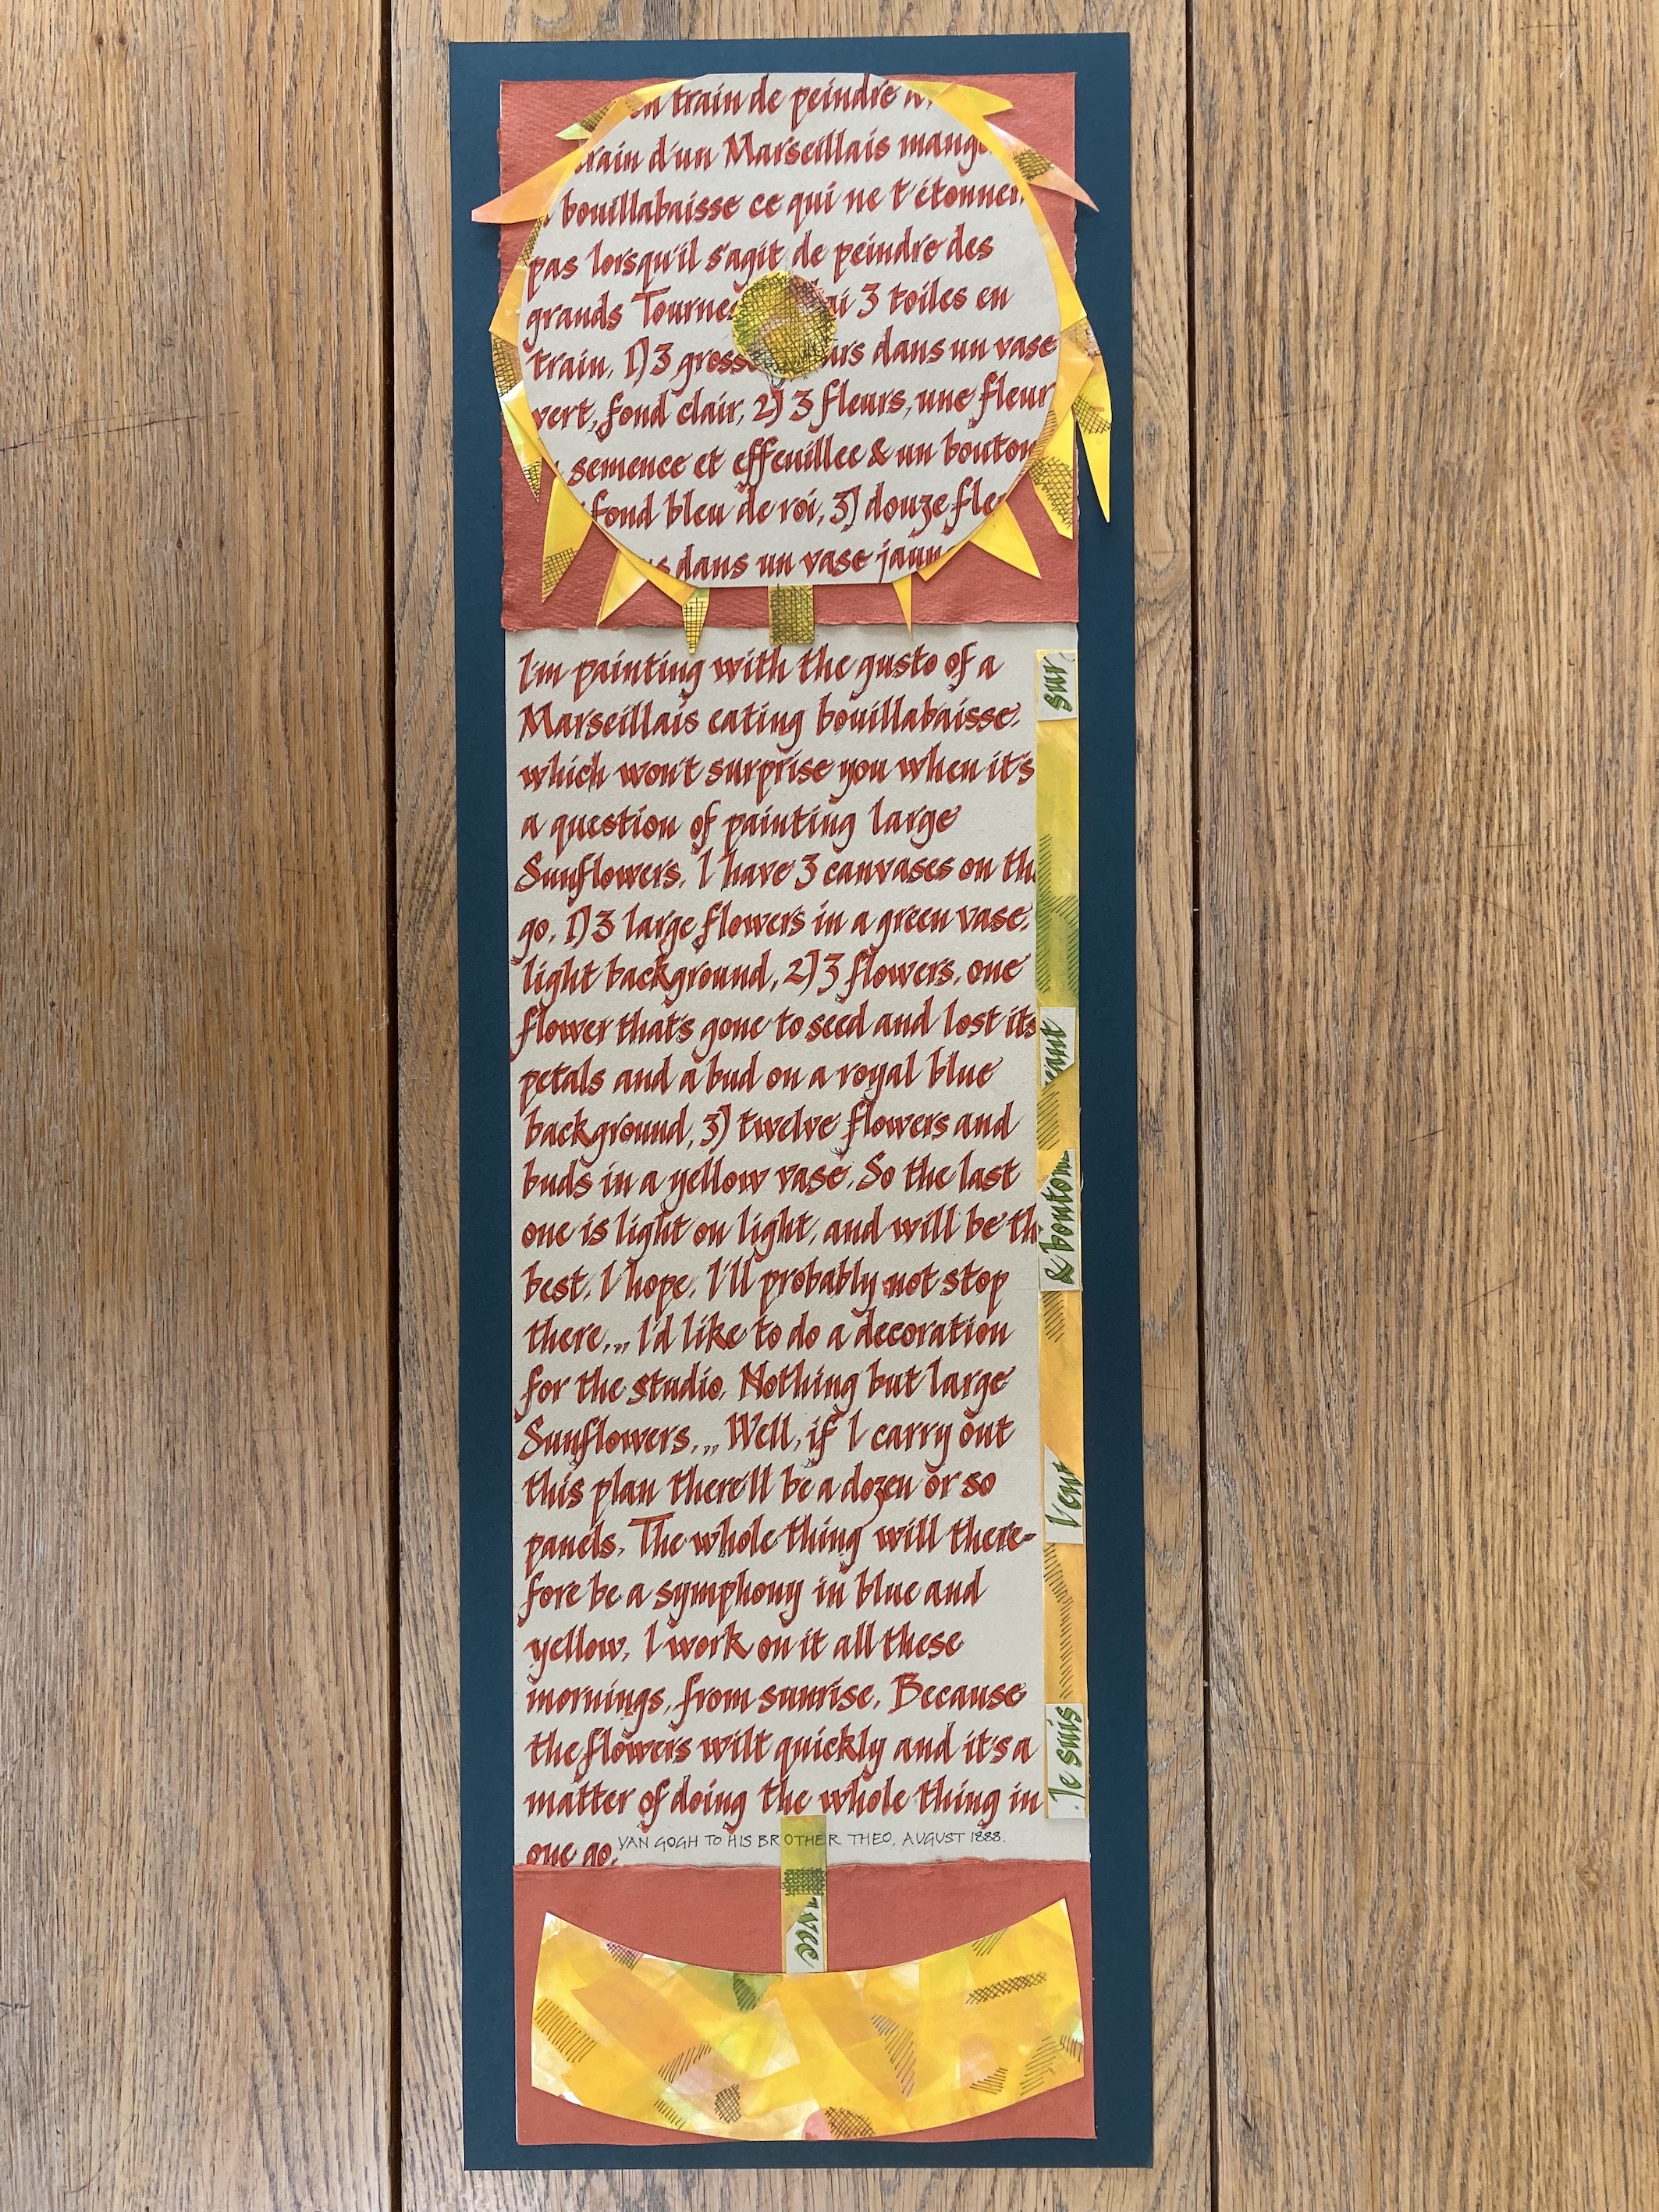 train de peindre
d'un Marseillais
bouillabaisse ce qui ne t'étonner
pas lorsqu'il s'agit de peindre des
grands Tournes ai 3 toiles en
train, 1) 3 gross urs dans un vase
vert, fond clair, 2) 3 fleurs, une fleur
semence et effeuillee & un bouton
fond bleu de roi, 3) douze fle
dans un vase jaun
I'm painting with the gusto of a
Marseillais eating bouillabaisse,
which won't surprise you when it's
a question of painting large
Sunflowers. I have 3 canvases on the
go, 1) 3 large flowers in a green vase,
light background, 2) 3 flowers, one
flower that's gone to seed and lost its
petals and a bud on a royal blue
background, 3) twelve flowers and
buds in a yellow vase. So the last
one is light on light, and will be the
best, I hope. I'll probably not stop
there... I'd like to do a decoration
for the studio. Nothing but large
Sunflowers... Well, if I carry out
this plan there'll be a dozen or so
panels. The whole thing will there-
fore be a symphony in blue and
yellow. I work on it all these
mornings, from sunrise. Because
the flowers wilt quickly and it's a
matter of doing the whole thing in
one go.
VAN GOGH TO HIS BROTHER THEO, AUGUST 1888.
sur
& bouton
Je suis